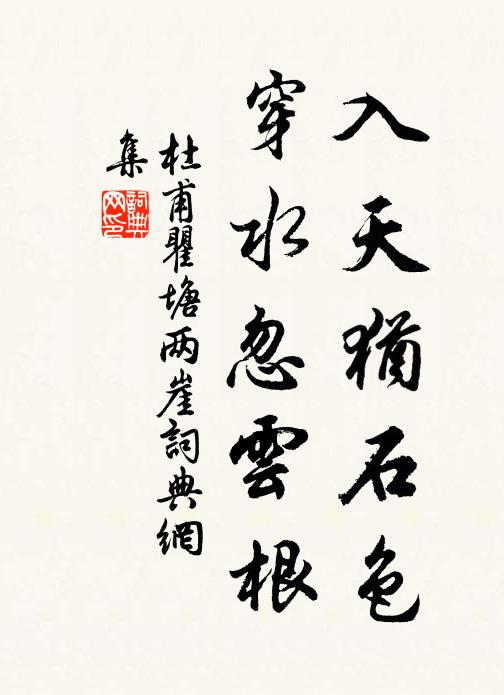 入天猶石色
穿水忽雲根
杜甫瞿塘两崖詞典網
集
詞典
网印